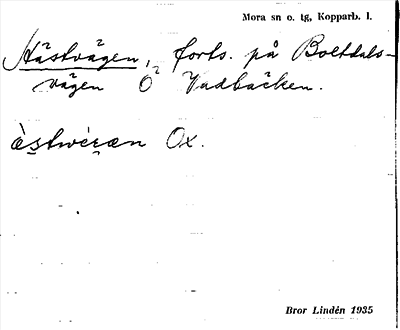 Mora sn o. tg, Kopparb. l.
Hästvägen, forts. på Boltdals-
vägen Ö Vadbäcken.
æ̀s̱twèṛæn Ox.
Bror Lindén 1935